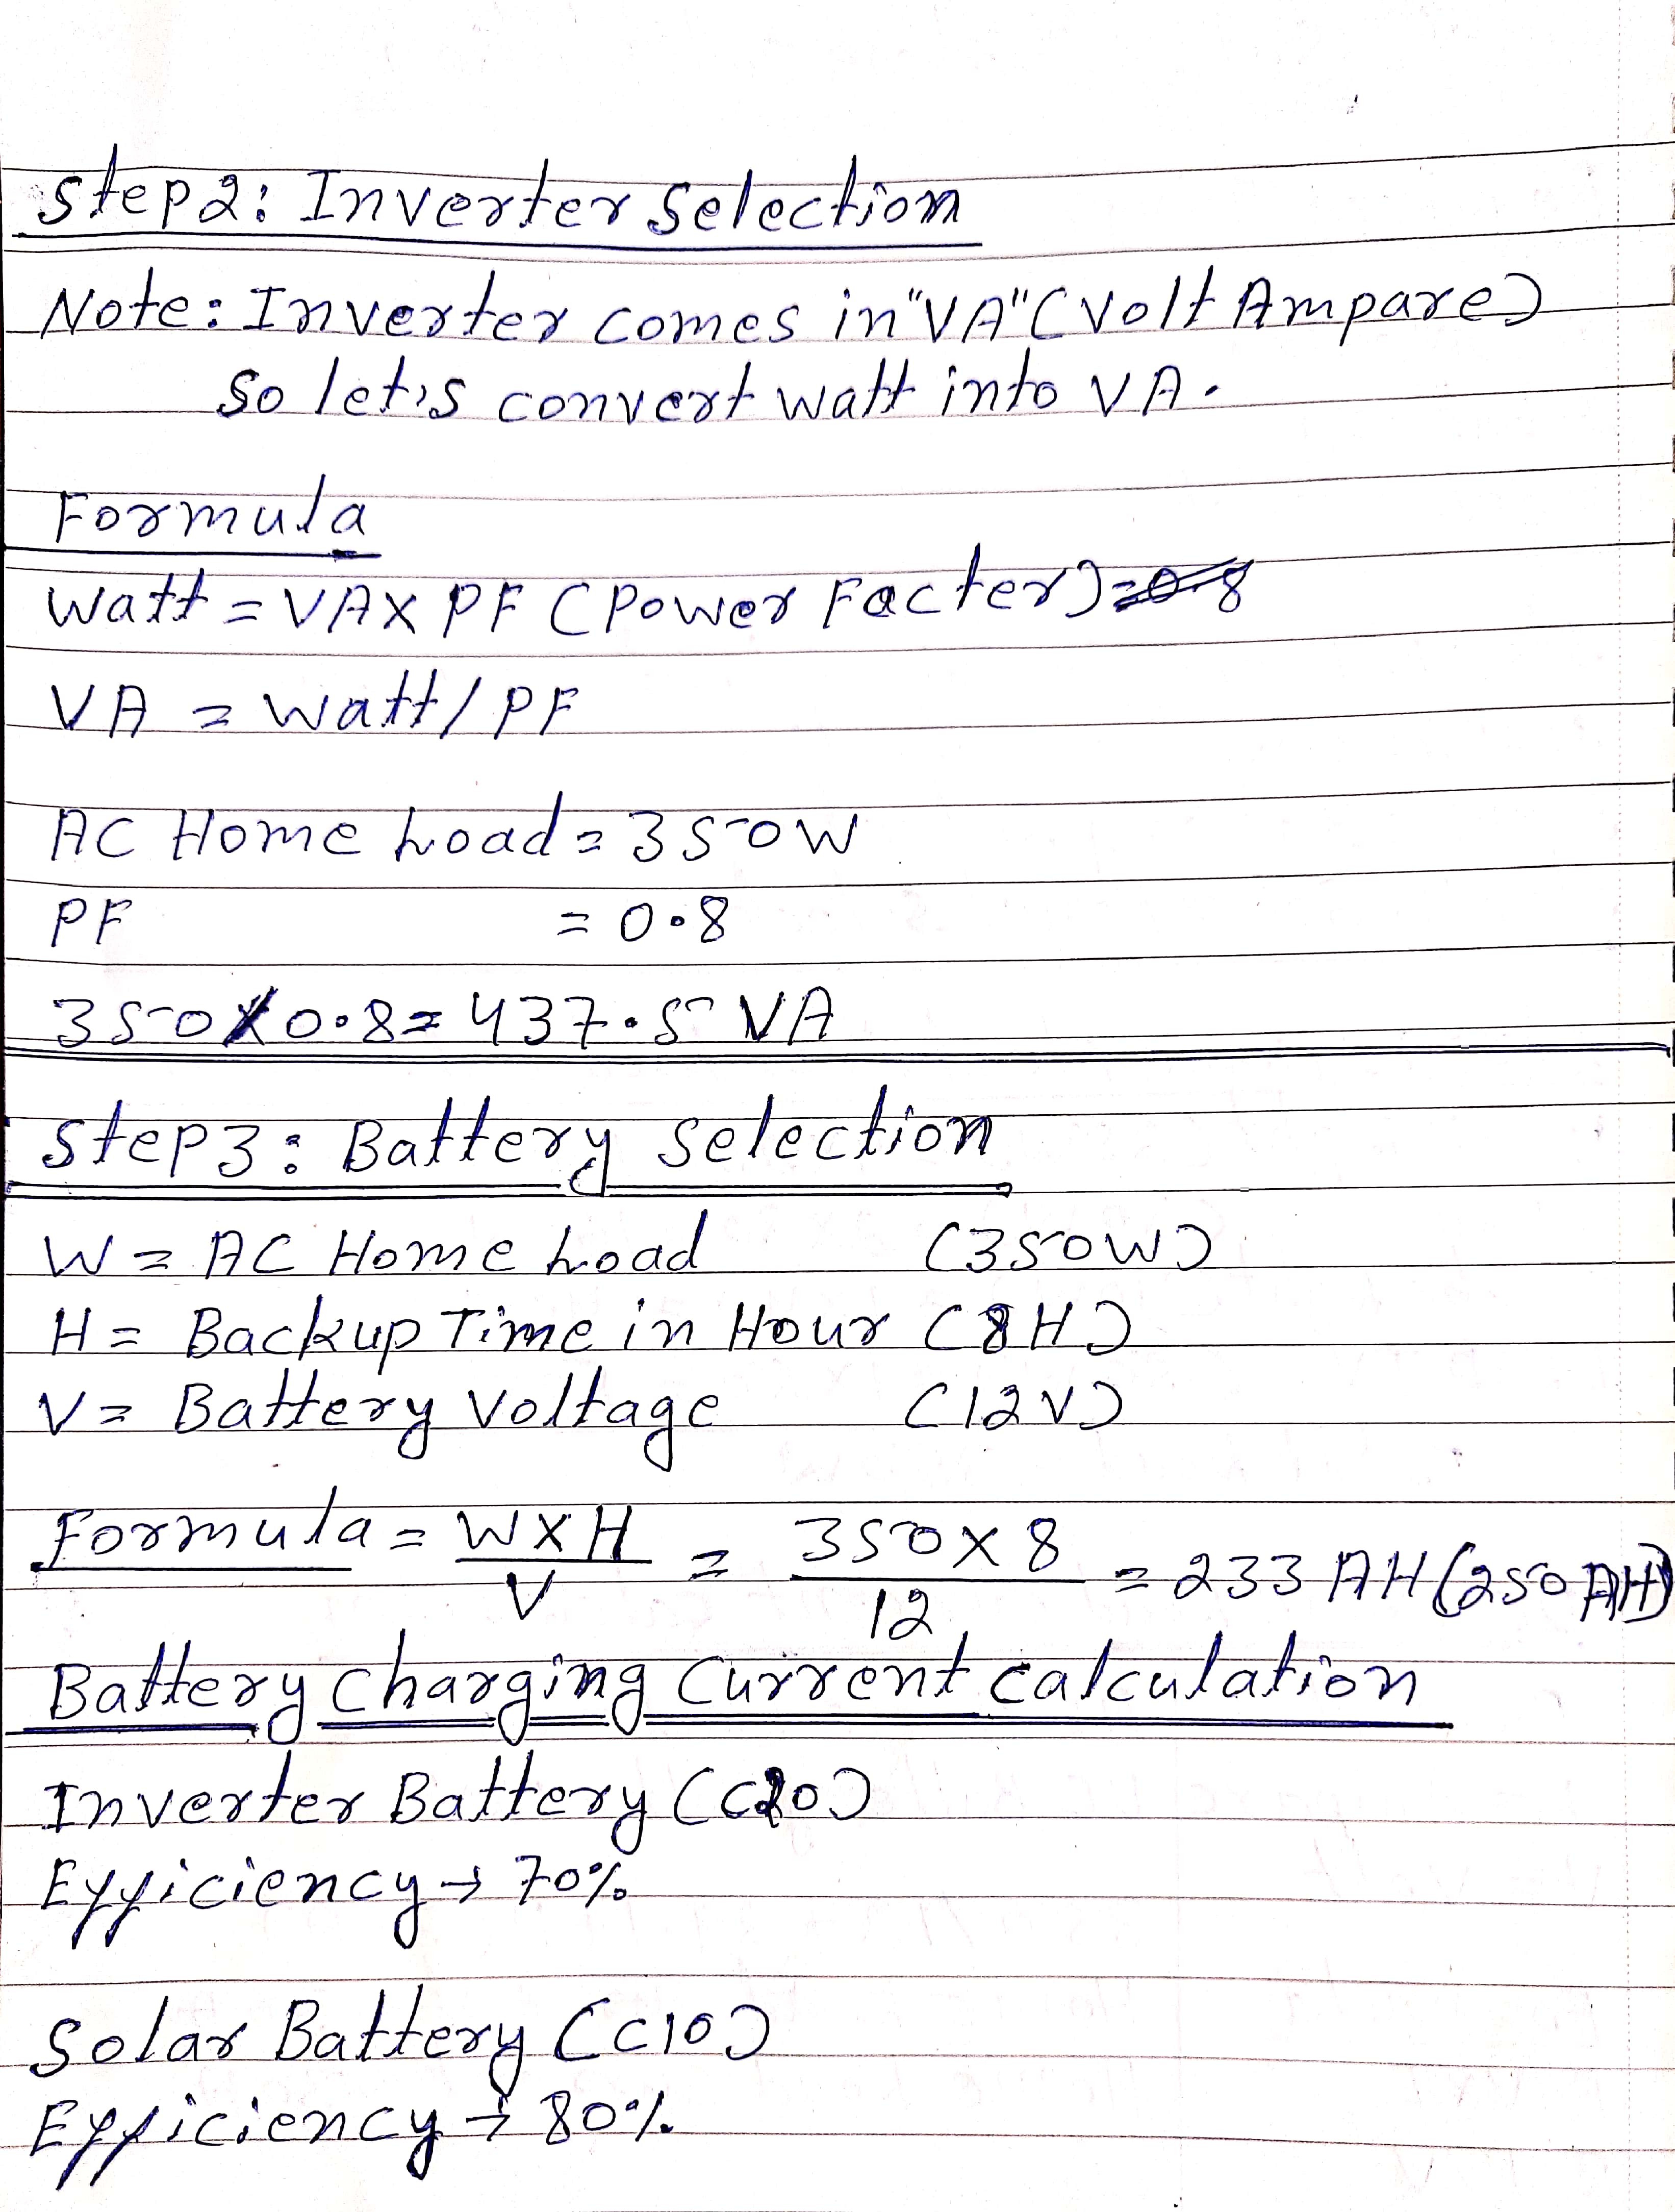 Step2: Inverter Selection
Note: Inverter comes in "VA" (Volt Ampare)
So let's convert watt into VA.
Formula
Watt = VA X PF (Power Facter)
VA = Watt / PF
AC Home Load = 350W
PF = 0.8
350 / 0.8 = 437.5 VA
Step3: Battery Selection
W = AC Home Load (350W)
H = Backup Time in Hour (8H)
V = Battery Voltage (12V)
Formula = WXH / V = 350 X 8 / 12 = 233 AH (250 AH)
Battery Charging Current calculation
Inverter Battery (C20)
Efficiency → 70%
Solar Battery (C10)
Efficiency → 80%